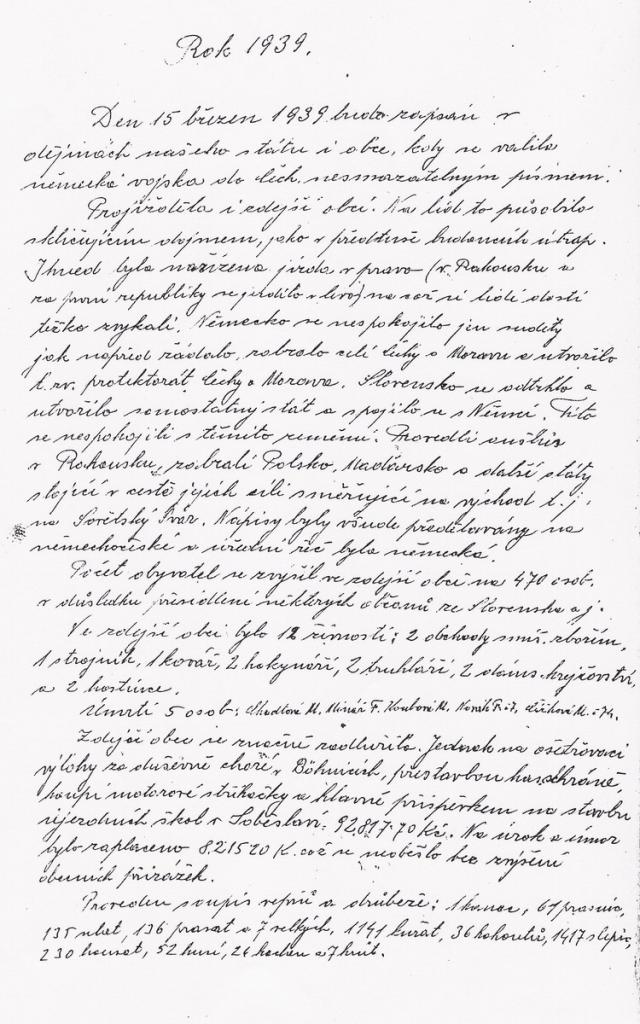 Rok 1939.
Den 15 březen 1939 bude zapsán v
dějinách našeho státu i obce, kdy se valila
německá vojska do Čech, nesmazatelným písmem.
Projížděla i zdejší obcí. Na lid to působilo
skličujícím dojmem, jako v předtuše budoucích útrap.
Ihned byla nařízena jízda v pravo (v Rakousku a
za první republiky se jezdilo v levo) na což si lidé dosti
těžko zvykali. Německo se nespokojilo jen sudety
jak napřed žádalo, zabralo celé Čechy a Moravu a utvořilo
t. zv. protektorát Čechy a Morava. Slovensko se odtrhlo a
utvořilo samostatný stát a spojilo se s Němci. Tito
se nespokojili s těmito zeměmi. Provedli anšlus
v Rakousku, zabrali Polsko, Maďarsko a další státy
stojící v cestě jejich cíli směřující na východ t. j.
na Sovětský Svaz. Nápisy byly všude předělávány na
německočeské a úřední řeč byla německá.
Počet obyvatel se zvýšil ve zdejší obci na 470 osob.
v důsledku přesídlení některých občanů ze Slovenska a j.
Ve zdejší obci bylo 12 živností: 2 obchody smíš. zbožím,
1 strojník, 1 kovář, 2 hokynáři, 2 truhláři, 2 dáms. krejčovství,
a 2 hostince.
Úmrtí 5 osob: M. F. M. Novák M.
Zdejší obec se značně zadlužila. Jednak na ošetřovací
výlohy za duševně choré v Bohnicích, přestavbou has. chráně,
koupí motorové stříkačky a hlavně příspěvkem na stavbu
újezdních škol v Soběslavi: 92,817·70 Kč. Na úrok a úmor
bylo zaplaceno 8.215 20 K. což se neobešlo bez zvýšení
obecních přirážek.
Proveden soupis vepřů a drůbeže: 1 kanec, 61 prasnic,
135 selat, 136 prasat a 7 velkých, 1141 kuřat, 36 kohoutů, 1417 slepic,
230 housat, 52 husí, 24 kachen a 7 krůt.